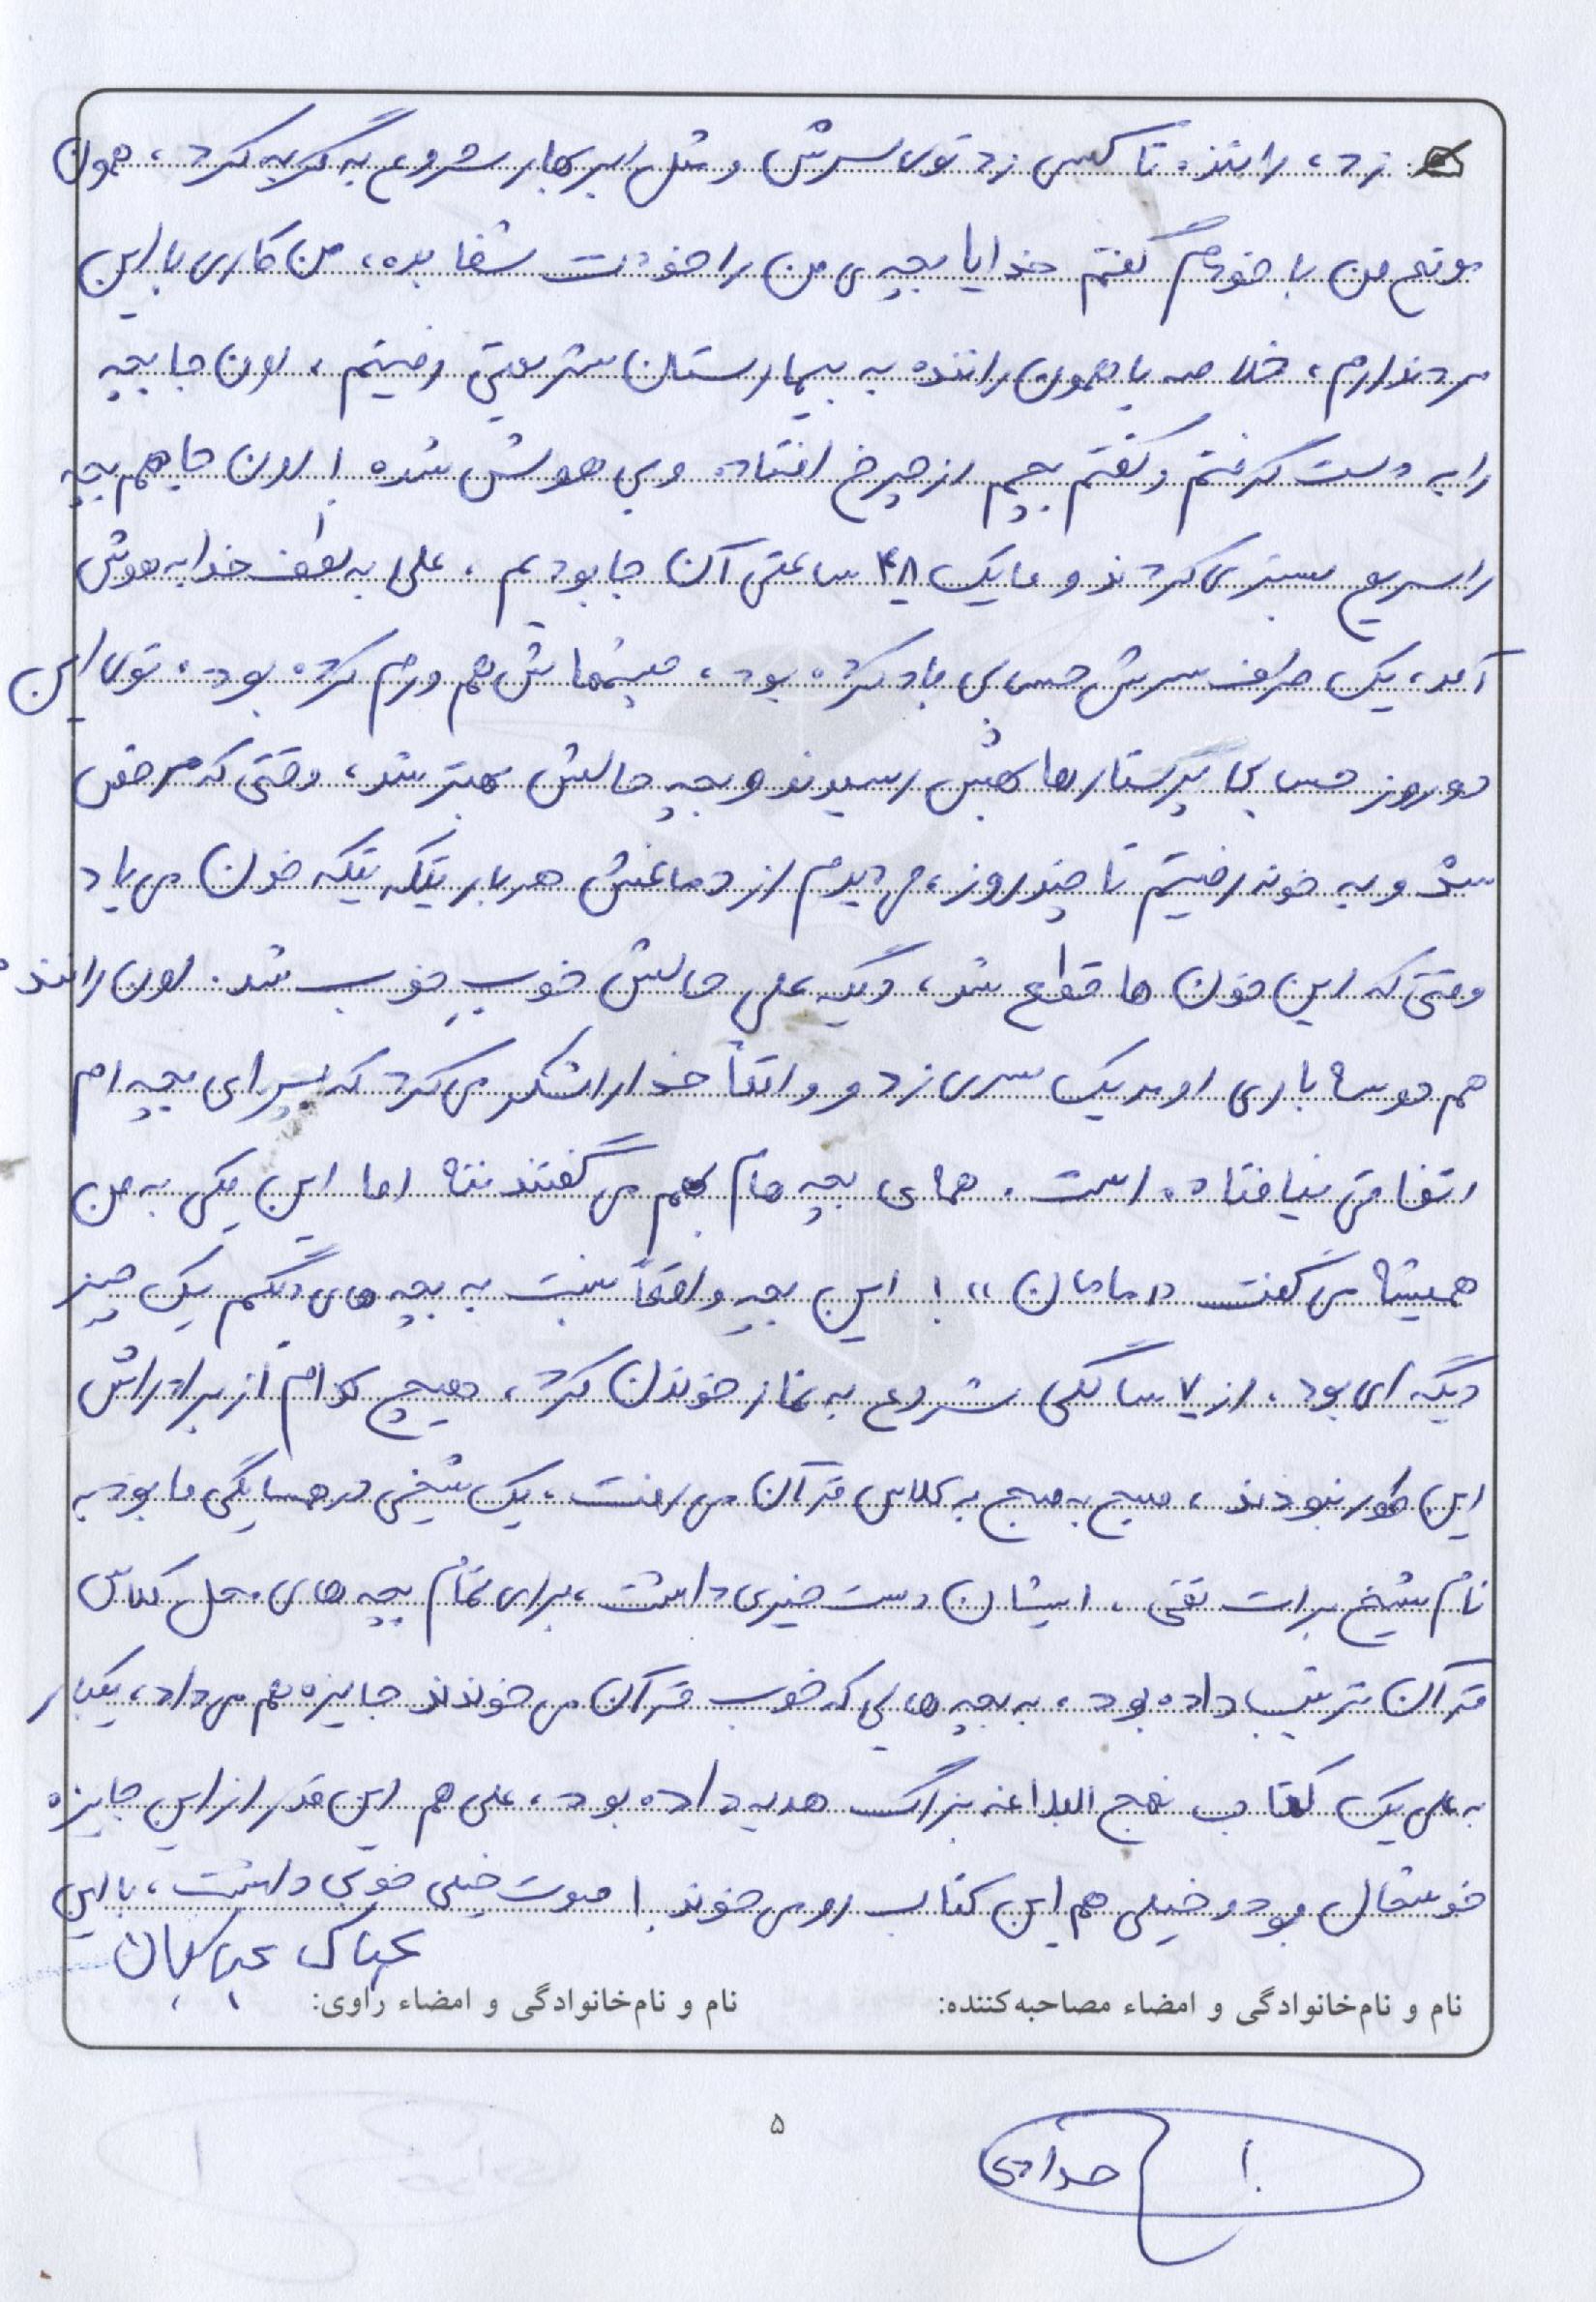 زد، راننده تاکسی زد توی سرش و مثل ابر بهار شروع به گریه کرد، همون
موقع من با خودم گفتم خدایا بچه ی من را خودت شفا بده، من کاری با این
مرد ندارم، خلاصه با همون راننده به بیمارستان شریعتی رفتیم، اون جا بچه
را به دست گرفتم و گفتم بچم از چرخ افتاده و بی هوش شده! اون جا هم بچه
را سریع بستری کردند و ما یک ۴۸ ساعتی آن جا بودیم، علی به لطف خدا به هوش
آمد، یک طرف سرش حسابی باد کرده بود، چشماش هم ورم کرده بود، توی این
دو روز حسابی پرستارها بهش رسیدند و بچه حالش بهتر شد، وقتی که مرخص
شد و به خونه رفتیم تا چند روز، می دیدم از دماغش هر بار تیکه تیکه خون می یاد
وقتی که این خون ها قطع شد، دیگه علی حالش خوب خوب شد. اون راننده
هم دو سه باری اومد یک سری زد و واقعاً خدا را شکر می کرد که برای بچه ام
اتفاقی نیافتاده است. همه ی بچه هام بهم می گفتند ننه اما این یکی به من
همیشه می گفت «مامان»! این بچه واقعاً نسبت به بچه های دیگم یک چیز
دیگه ای بود، از ۷ سالگی شروع به نماز خوندن کرد، هیچ کدام از برادراش
این طور نبودند، صبح به صبح به کلاس قرآن می رفت، یک شیخی در همسایگی ما بود به
نام شیخ برات تقی، ایشان دست خیری داشت، برای تمام بچه های محل کلاس
قرآن ترتیب داده بود، به بچه هایی که خوب قرآن می خوندند جایزه هم می داد، یکبار
به علی یک کتاب نهج البلاغه بزرگ هدیه داده بود، علی هم این قدر از این جایزه
خوشحال بود و خیلی هم این کتاب رو می خوند! صوت خیلی خوبی داشت، با این
نام و نام‌خانوادگی و امضاء مصاحبه‌کننده: نام و نام‌خانوادگی و امضاء راوی:
۵